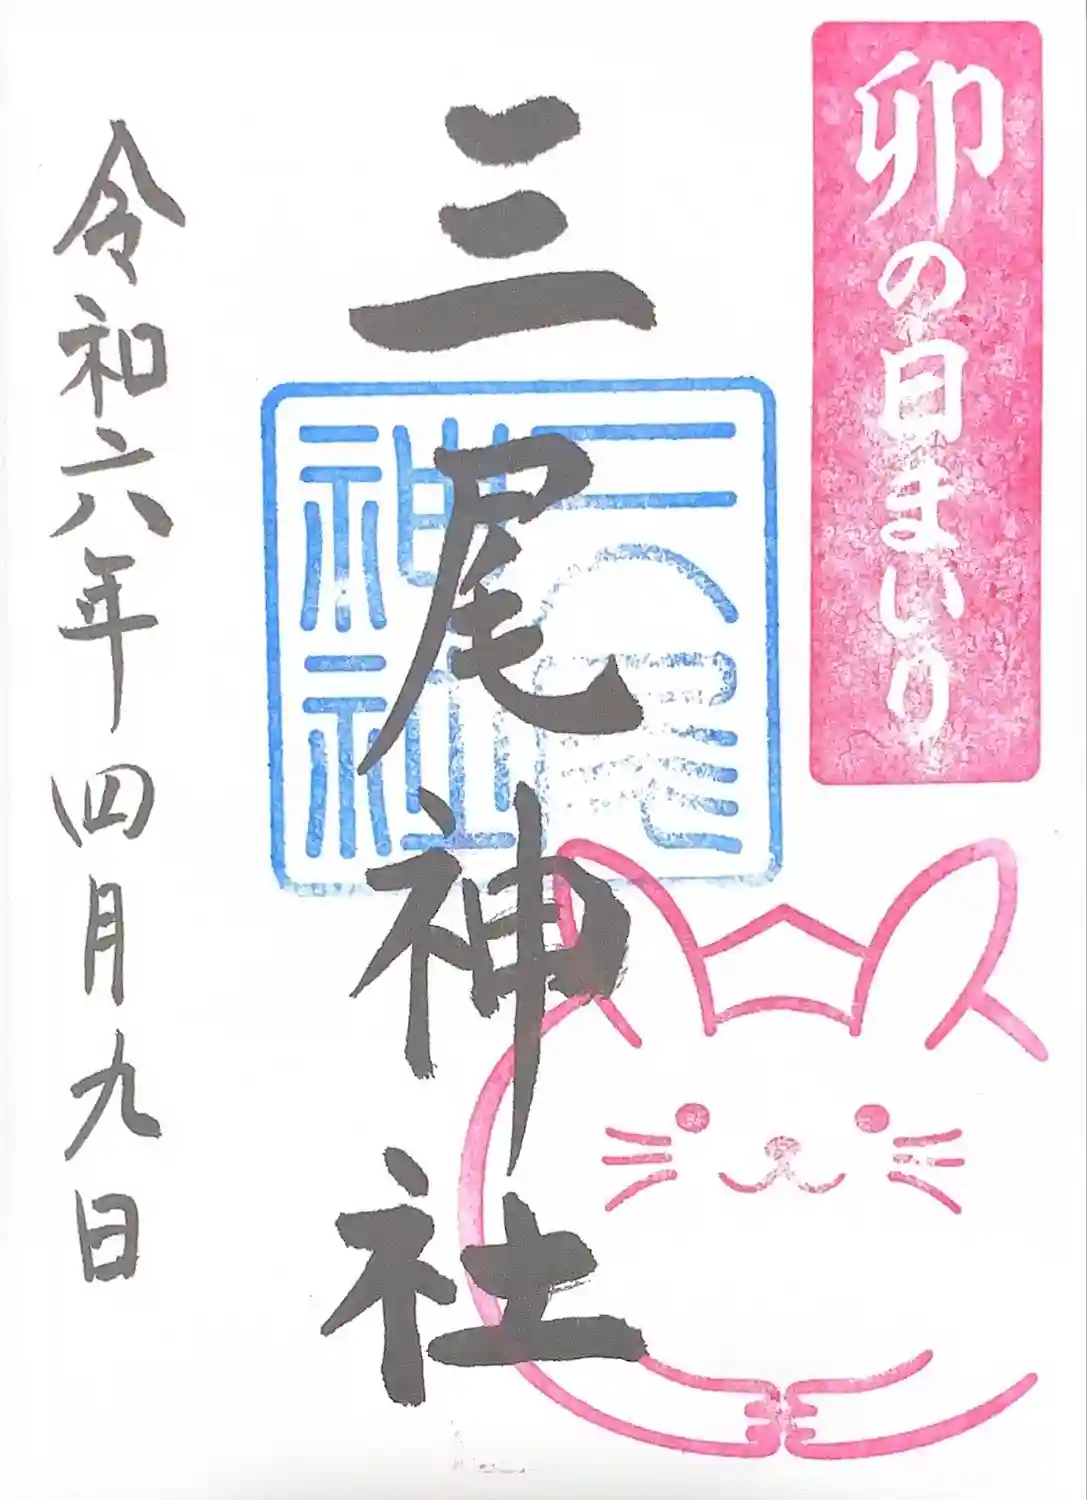 卯の日まいり
三尾神社
三尾神社
令和六年四月九日